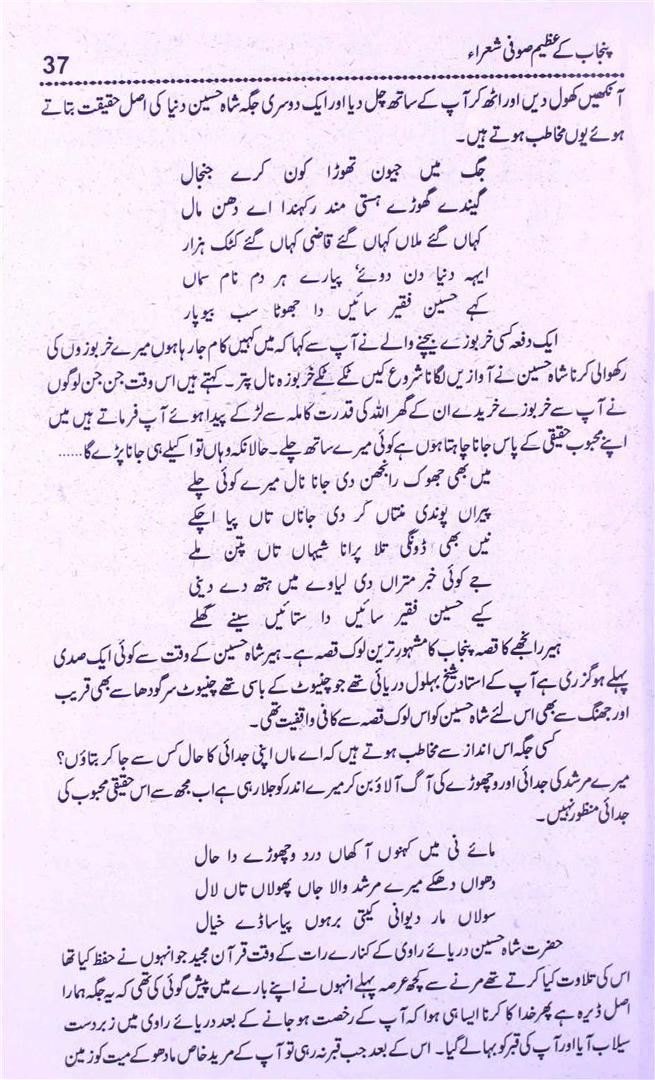 پنجاب کے عظیم صوفی شعراء
37
آنکھیں کھول دیں اور اٹھ کر آپ کے ساتھ چل دیا اور ایک دوسری جگہ شاہ حسین دنیا کی اصل حقیقت بتاتے
ہوئے یوں مخاطب ہوتے ہیں۔
جگ میں جیون تھوڑا کون کرے جنجال
گیندے گھوڑے ہستی مندر کہندا اے دھن مال
کہاں گئے ملاں کہاں گئے قاضی کہاں گئے کٹک ہزار
ایہہ دنیا دن دوئے پیارے ہر دم نام سماں
کہے حسین فقیر سائیں دا جھوٹا سب بیوپار
ایک دفعہ کسی خربوزے بیچنے والے نے آپ سے کہا کہ میں کہیں کام جا رہا ہوں میرے خربوزوں کی
رکھوالی کرنا شاہ حسین نے آوازیں لگانا شروع کیں ٹکے ٹکے خربوزہ نال پتر۔ کہتے ہیں اس وقت جن جن لوگوں
نے آپ سے خربوزے خریدے ان کے گھر اللہ کی قدرت کاملہ سے لڑکے پیدا ہوئے آپ فرماتے ہیں میں
اپنے محبوب حقیقی کے پاس جانا چاہتا ہوں ہے کوئی میرے ساتھ چلے۔ حالانکہ وہاں تو اکیلے ہی جانا پڑے گا......
میں بھی جھوک رانجھن دی جانا نال میرے کوئی چلے
پیراں پوندی منتاں کر دی جاناں تاں پیا اچکے
نیں بھی ڈونگی تلا پرانا شیہاں تاں پتن ملے
جے کوئی خبر متراں دی لیاوے میں ہتھ دے دینی
کہے حسین فقیر سائیں دا ستائیں سینے گھلے
ہیر رانجھے کا قصہ پنجاب کا مشہور ترین لوک قصہ ہے۔ ہیر شاہ حسین کے وقت سے کوئی ایک صدی
پہلے ہو گزری ہے آپ کے استاد شیخ بہلول دریائی تھے جو چنیوٹ کے باسی تھے چنیوٹ سرگودھا سے بھی قریب
اور جھنگ سے بھی اس لئے شاہ حسین کو اس لوک قصہ سے کافی واقفیت تھی۔
کسی جگہ اس انداز سے مخاطب ہوتے ہیں کہ اے ماں اپنی جدائی کا حال کس سے جا کر بتاؤں؟
میرے مرشد کی جدائی اور وچھوڑے کی آگ آلاؤ بن کر میرے اندر کو جلا رہی ہے اب مجھ سے اس حقیقی محبوب کی
جدائی منظور نہیں۔
مائے نی میں کہنوں آکھاں درد وچھوڑے دا حال
دھواں دھکے میرے مرشد والا جاں پھولاں تاں لال
سولاں مار دیوانی کیتی برہوں پیا ساڈے خیال
حضرت شاہ حسین دریائے راوی کے کنارے رات کے وقت قرآن مجید جو انہوں نے حفظ کیا تھا
اس کی تلاوت کیا کرتے تھے مرنے سے کچھ عرصہ پہلے انہوں نے اپنے بارے میں پیش گوئی کی تھی کہ یہ جگہ ہمارا
اصل ڈیرہ ہے پھر خدا کا کرنا ایسا ہی ہوا کہ آپ کے رخصت ہو جانے کے بعد دریائے راوی میں زبردست
سیلاب آیا اور آپ کی قبر کو بہا لے گیا۔ اس کے بعد جب قبر نہ رہی تو آپ کے مرید خاص مادھو کے میت کو زمین